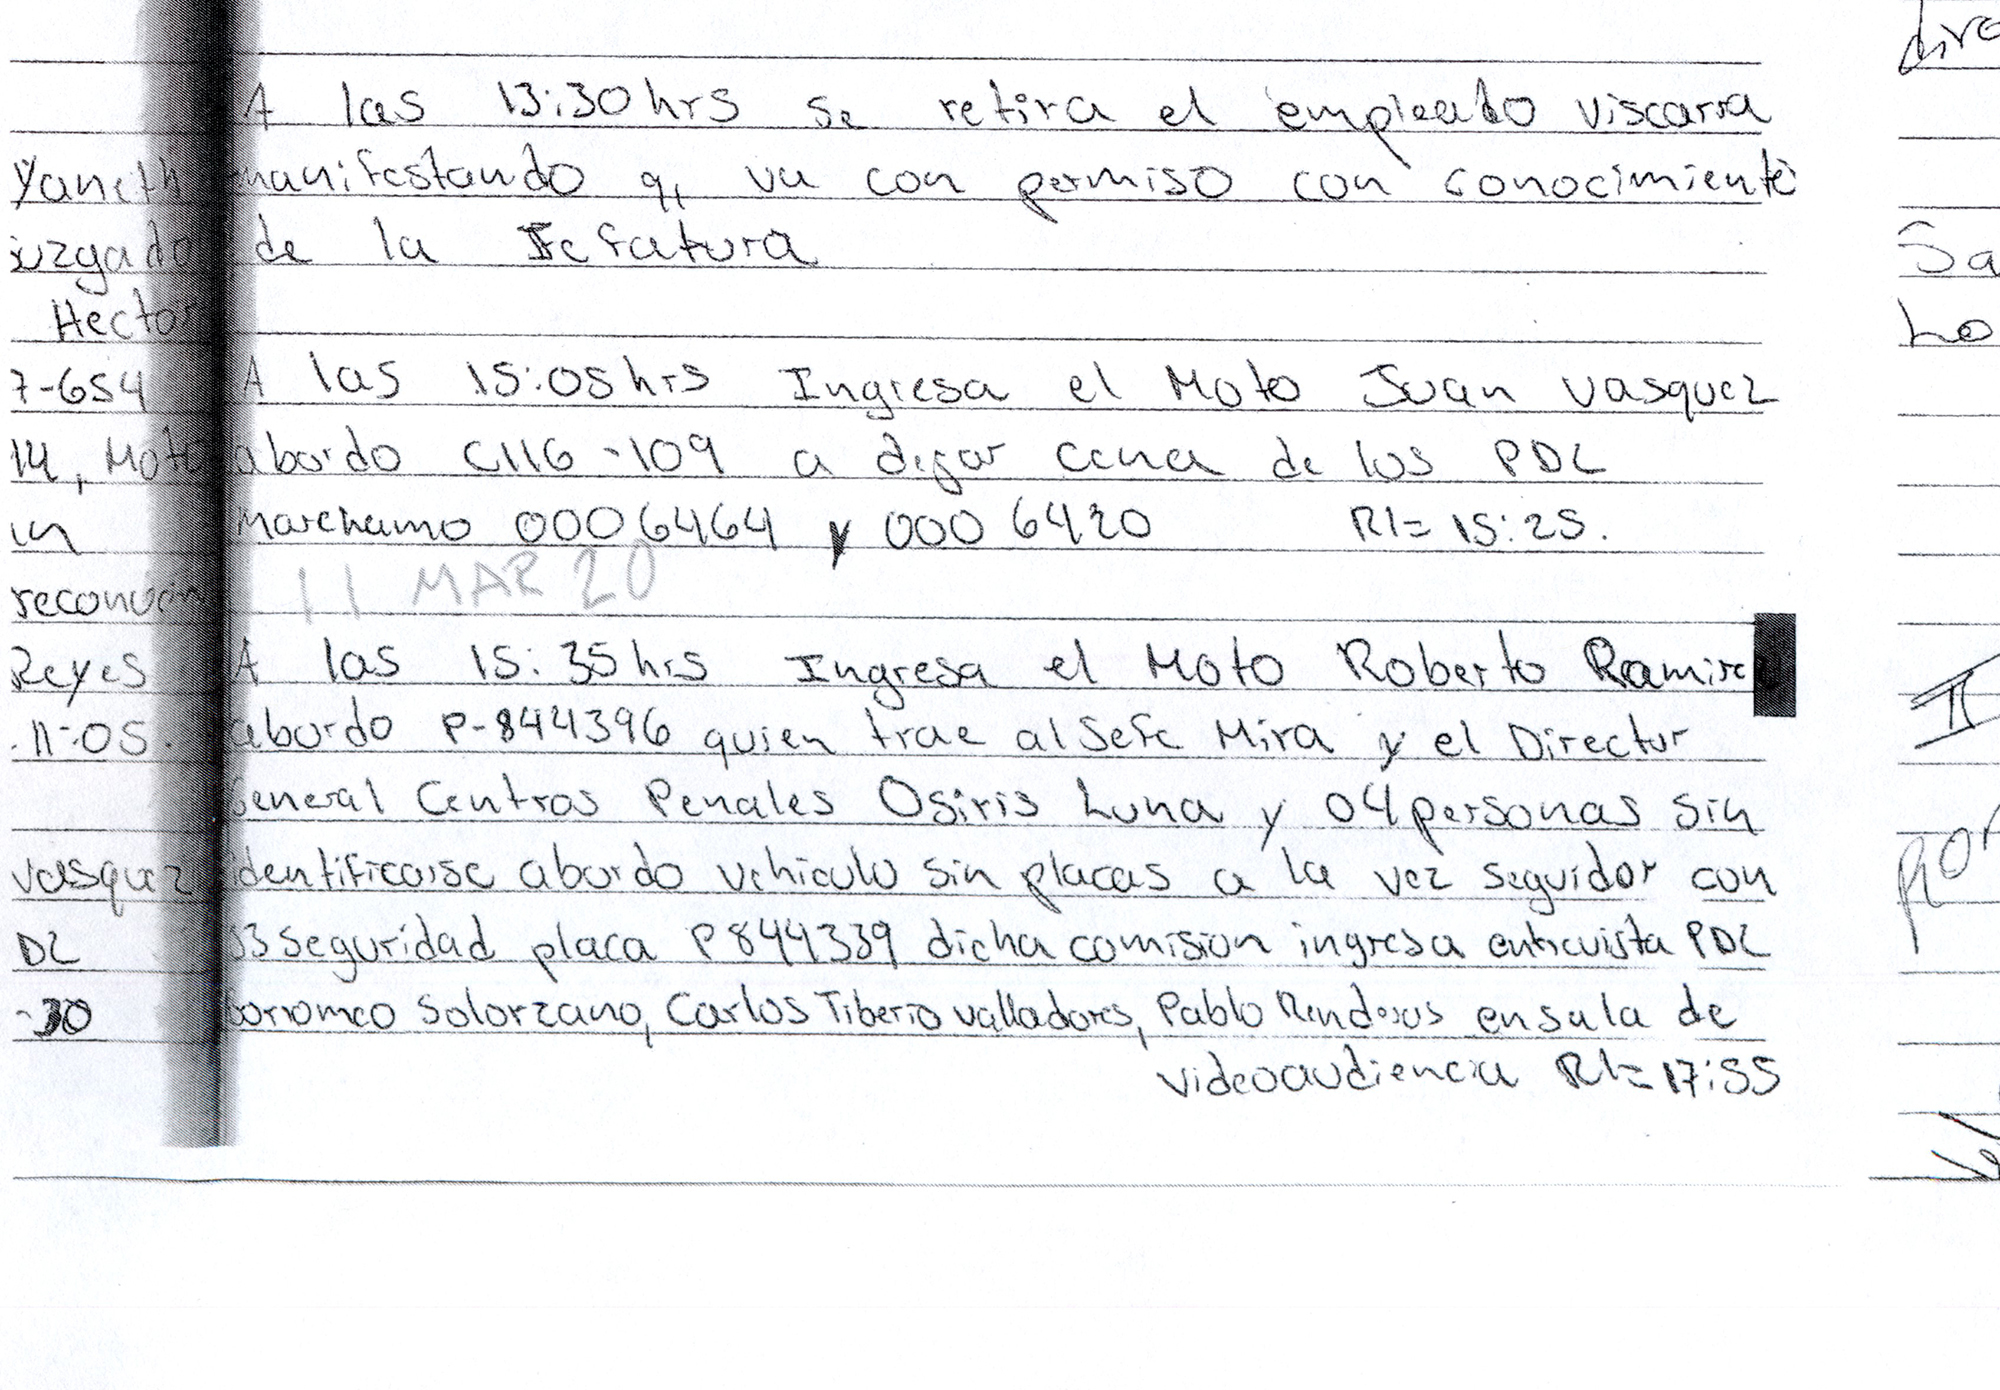 A las 13:30 hrs se retira el empleado viscarra
manifestando q, va con permiso con conocimiento
de la Jefatura
A las 15:05 hrs Ingresa el Moto Juan Vasquez
abordo C116-109 a dejar cena de los PDL
Marchamo 0006464 y 0006420 R1= 15:25.
11 MAR 20
A las 15:35 hrs Ingresa el Moto Roberto Ramire
abordo P-844396 quien trae al Jefe Mira y el Director
General Centros Penales Osiris Luna y 04 personas sin
identificarse abordo vehiculo sin placas a la vez seguidor con
03 seguridad placa P844339 dicha comision ingresa entrevista PDL
borromeo Solorzano, Carlos Tiberio valladares, Pablo en sala de
videoaudiencia R1= 17:55
Yaneth
juzgado
Hector
7-654
14, Moto
un
Reyes
11-05.
vasquez
DL
-30
Sa
Lo
II
por